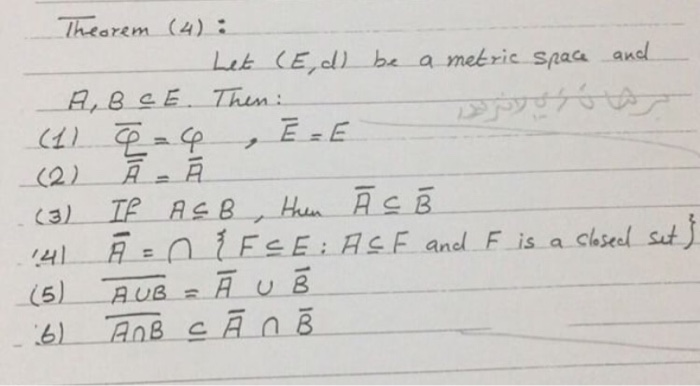 Theorem (4) :
Let (E,d) be a metric space and
A, B ⊆ E. Then:
(1) φ̅ = φ , E̅ = E
(2) A̿ = A̅
(3) If A ⊆ B, then A̅ ⊆ B̅
(4) A̅ = ∩ {F ⊆ E : A ⊆ F and F is a closed set}
(5) A̅∪̅B̅ = A̅ ∪ B̅
(6) A̅∩̅B̅ ⊆ A̅ ∩ B̅